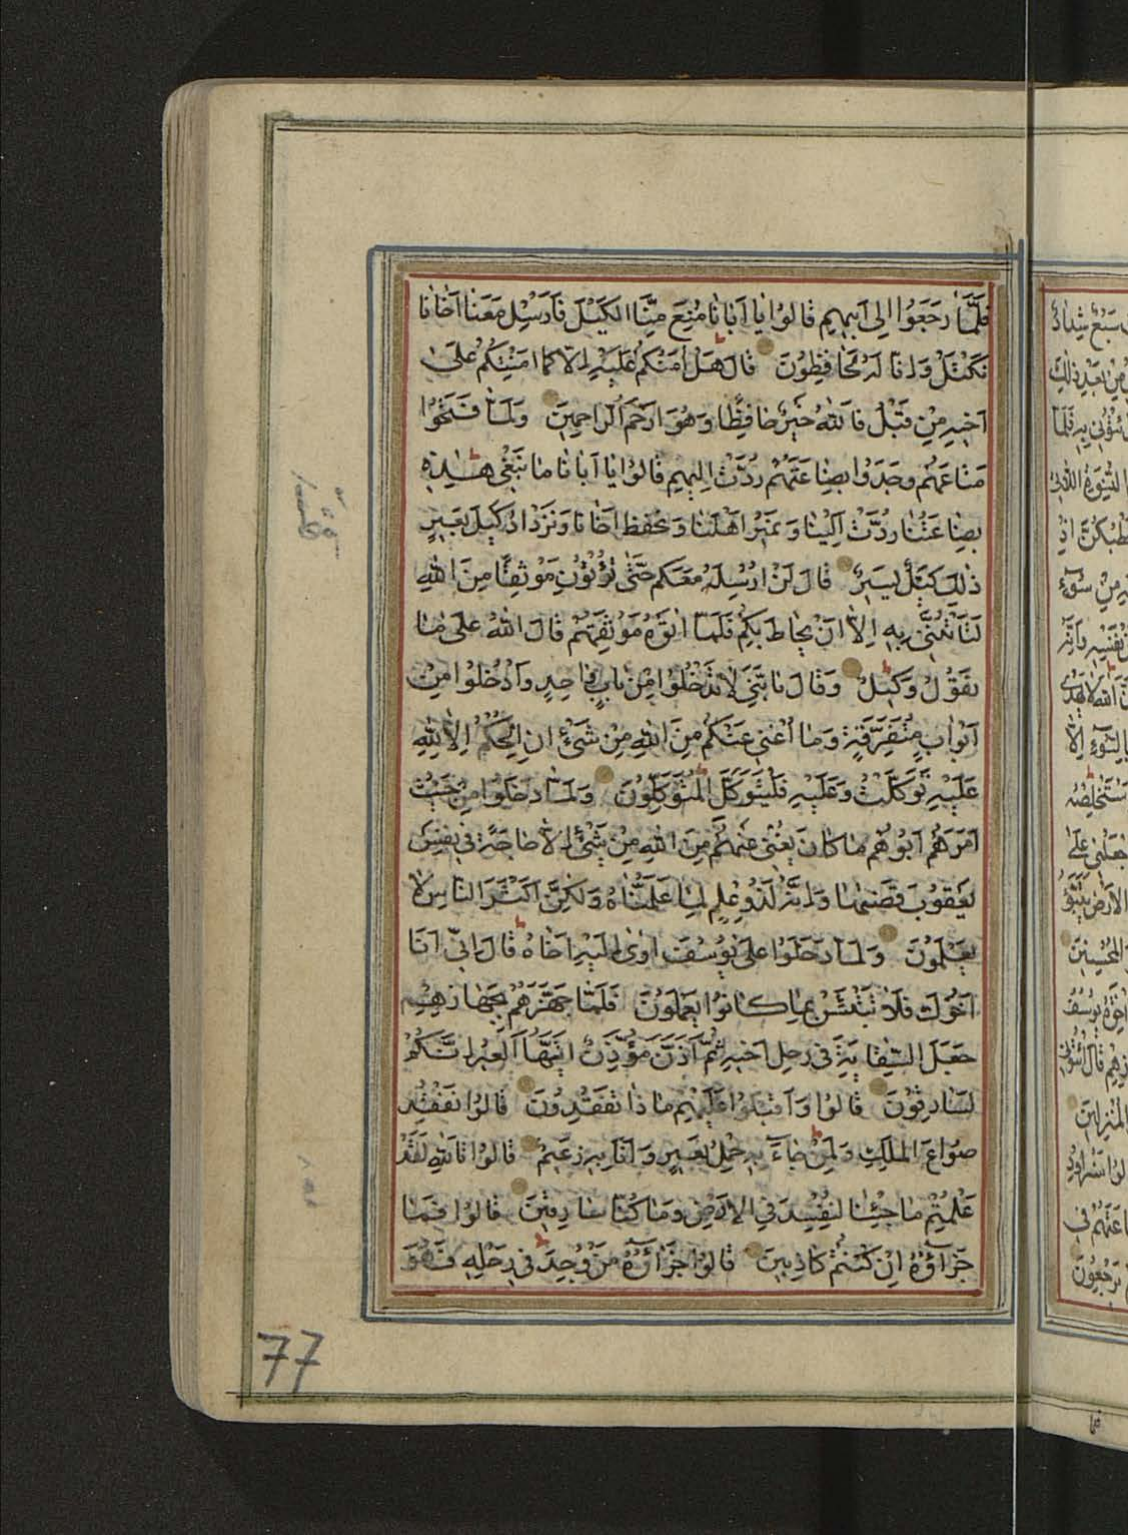 فَلَمَّا رَجَعُوا اِلى اَبيهِمِ قالوُا يا اَبانا مُنِعَ مِنَّا الكَيْلَ فَاَرَسْلِ مَعَنا اَخانا
نَكْتَلْ وَاِنا لَهُ لَحافِظوُنَ قالَ هَلْ امَنُكُمُ عَلَيْهِ اِلاّ كَما اَمِنْتُكُمْ عَلىَ
اَخيهِ مِنِ قَبْلُ فَاللهُ خَيْرٌ حافِظًا وَهُوَ اَرحَمَ الراحِمينَ وَلَمّا فَتَحَوُا
مَتاعَهُم وَجَدَوُا بِضِاعَتَهُمْ رُدَّتْ اِلِيهِمِ قالوُا يا اَبانا ما نَبَغْى هذِهِ
بِضِاعَتُنا رُدَّتْ اِلَيْنا وَنَميرُ اَهْلَنا وَنحْفظ اَخانا وَنَزَدْادُ كَيْلَ بَعيرٍ
ذلِكَ كَيْلٌ يَسيرٌ قالَ لَنْ اُرْسِلَهُ مَعَكم حَتّى تُؤْتوُنِ مَوْثِقًا مِنَ اللهِ
لَتَأْتُنَّنى بِهِ اِلاّ اَنْ يُحاطَ بِكِمْ فَلَمّا اتَوَهُ مَوْثِقَهُمْ قالَ اللهُ عَلى ما
نَقوُلُ وَكيلٌ وَقالَ يا بَنَىَّ لا تَدْخُلوُا مِنْ بابٍ واحِدٍ وَاَدْخُلوُا مِنْ
اَبْوابٍ مُتَفَرَّقِةٍ وَما اُغْنى عَنْكُم مِنَ اللهِ مِنْ شَىْءٍ اِنِ الحُكْمُ اِلاّ للهِ
عَلَيْهِ تَوَكَّلْتُ وَعَلَيْهِ فَلْيَتَوَكَّلَ المُتَوَكِّلوُنَ وَلَمّا دَخَلَوُا مِنْ حَيْثُ
اَمَرَهُم اَبوُهُم ما كانَ يُغْنى عَنْهُم مِنَ اللهِ مِنْ شَىْءٍ اِلاّ حاجَةً فى نَفْسِ
يَعَقوُبَ قَضيها وَاِنَّهُ لَذوُ عِلمٍ لِما عَلَّمْناهُ وَلكِنَّ اَكْثَرَ الناسِ لا
يَعْلَموُنَ وَلَمّا دَخَلوُا عَلىَ يوُسُفَ اوى اِلَيْهِ اَخاهُ قالَ اِنّى اَنَا
اَخوُكَ فَلا تَبْتَئَسْ بِما كانوُا يَعمَلوُنَ فَلَمّا جَهَّزَهُمْ بِجَهازِهِمِ
جَعَلَ السِّقايَةَ فى رَحلِ اَخيهِ ثُمَّ اَذَّنَ مُؤَذِّنٌ اَيَّتُهَا العيرُ اِنَّكُمْ
لَسارِقوُنَ قالوُا وَاَقْبَلوُا عَلَيْهِمِ ماذا تَفْقِدوُنَ قالوُا نَفْقِدُ
صوُاعَ المَلِكِ وَلِمَنْ جاءَ بِهِ حِمْلُ بَعيرٍ وَاَنا بِهِ زَعيمٌ قالوُا تَاللهِ لَقَدْ
عَلْمِتُمْ ما جِئْنا لِنُفْسِدَ فىِ الاَرْضِ وَما كُنّا سارِقينَ قالوُا فَما
جَزآؤُهُ اِنْ كُنْتُمْ كاذِبينَ قالوُا جَزَآؤُهُ مَنْ وُجِدَ فى رَحْلِهِ فَهُوَ
77